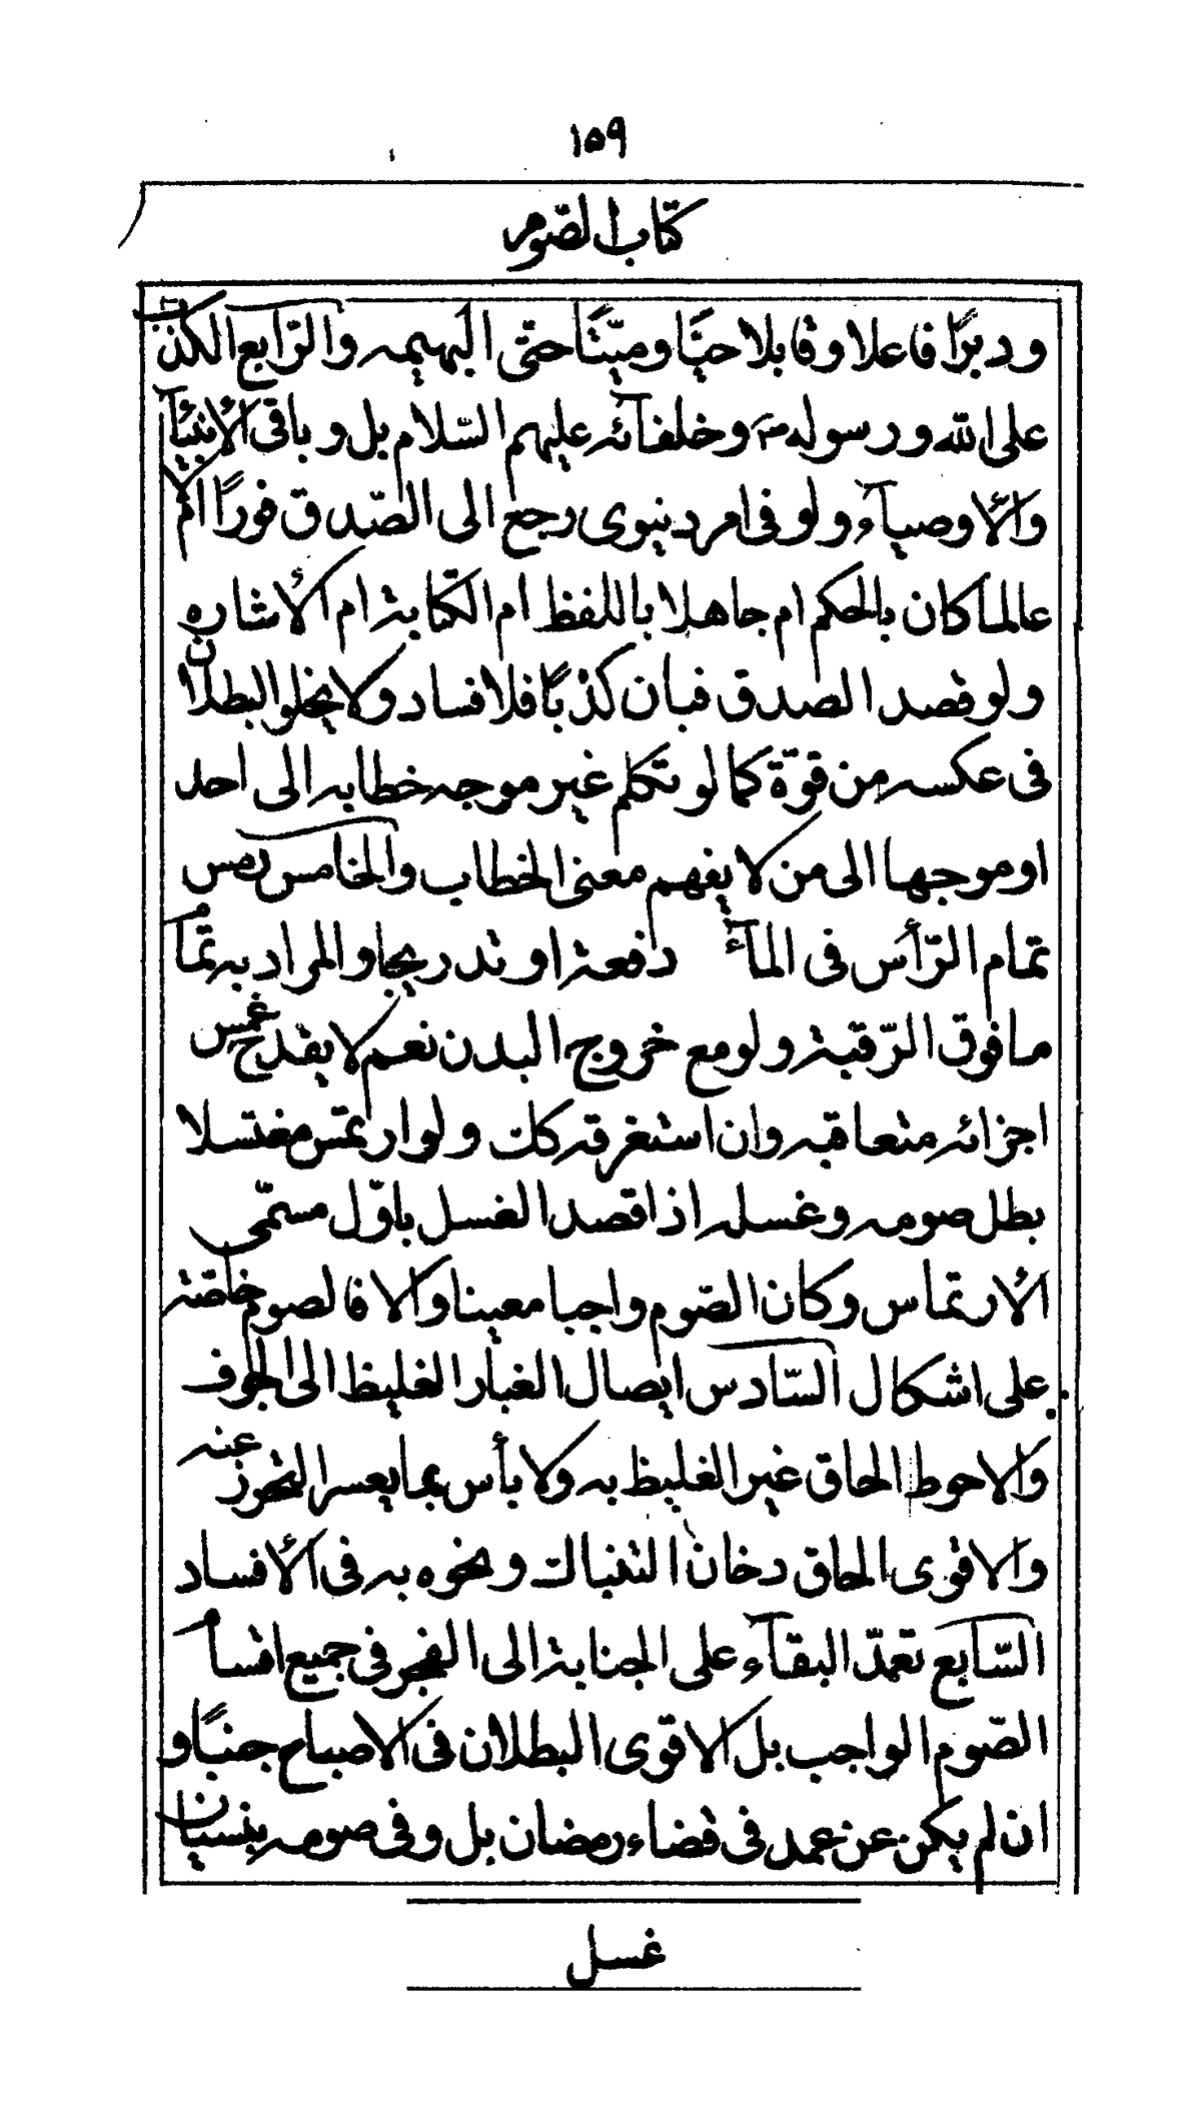 ١٥٩
كتاب الصّوم
ودبرًا فاعلا وقابلا حيًّا وميّتًا حتى البهيمه والرّابع الكذب
على الله ورسوله ص وخلفآئه عليهم السّلام بل وباقى الأنبيآء
والأوصيآء ولو فى امر دنيوى رجع الى الصّدق فورًا ام لا
عالما كان بالحكم ام جاهلا باللفظ ام الكتابة ام الأشاره
ولو قصد الصدق فبان كذبًا فلا فساد ولا يخلو البطلان
فى عكسه من قوّة كما لو تكلم غير موجه خطابه الى احد
او موجها الى من لا يفهم معنى الخطاب والخامس رمس
تمام الرّأس فى المآء دفعة او تدريجا والمراد به تمام
ما فوق الرّقبة ولو مع خروج البدن نعم لا يقدح غمس
اجزائه متعاقبه وان استغرقه كك ولو ارتمس مغتسلا
بطل صومه وغسله اذا قصد الغسل باوّل مسمّى
الأرتماس وكان الصّوم واجبا معينا والا فالصوم خاصّة
على اشكال السّادس ايصال الغبار الغليظ الى الجوف
والاحوط الحاق غير الغليظ به ولا بأس بما يعسر التحرز عنه
والاقوى الحاق دخان التنباك ونحوه به فى الأفساد
السّابع تعمّد البقآء على الجنابة الى الفجر فى جميع اقسام
الصّوم الواجب بل الاقوى البطلان فى الاصباح جنبًا و
ان لم يكن عن عمد فى قضاء رمضان بل وفى صومه بنسيان
غسل